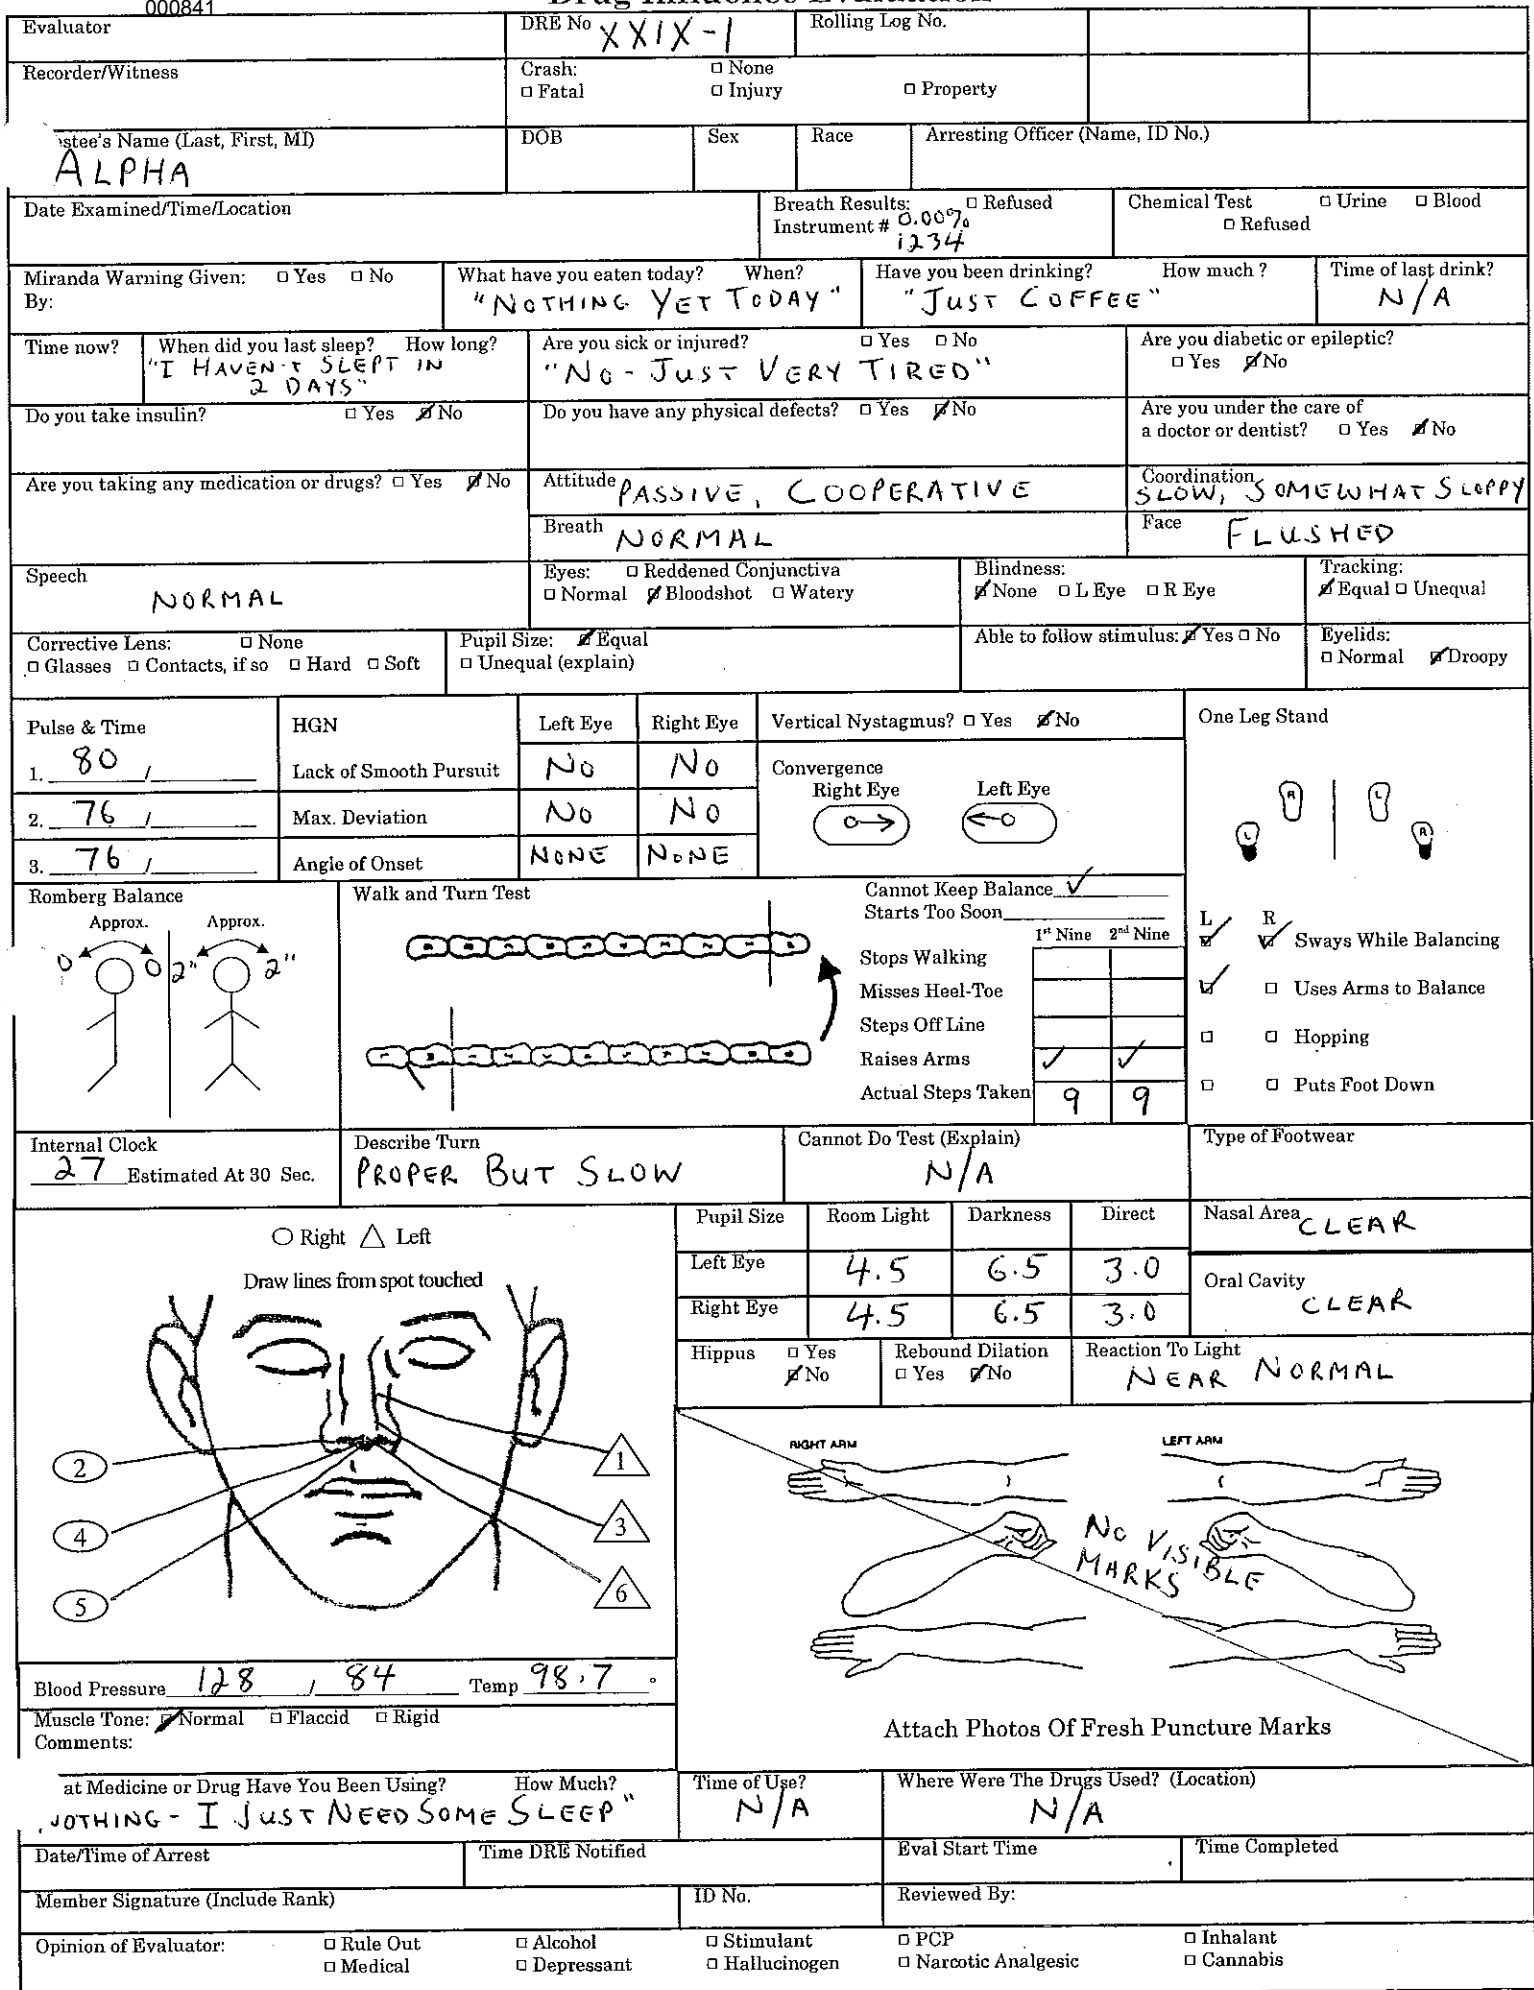 000841
Drug Influence Evaluation
Evaluator
DRE No XXIX-1
Rolling Log No.
Recorder/Witness
Crash: □ None
□ Fatal □ Injury □ Property
stee's Name (Last, First, MI)
ALPHA
DOB
Sex
Race
Arresting Officer (Name, ID No.)
Date Examined/Time/Location
Breath Results: □ Refused
Instrument # 0.00%
1234
Chemical Test □ Urine □ Blood
□ Refused
Miranda Warning Given: □ Yes □ No
By:
What have you eaten today? When?
"NOTHING YET TODAY"
Have you been drinking? How much ?
"JUST COFFEE"
Time of last drink?
N/A
Time now?
When did you last sleep? How long?
"I HAVEN'T SLEPT IN
2 DAYS"
Are you sick or injured? □ Yes □ No
"NO - JUST VERY TIRED"
Are you diabetic or epileptic?
□ Yes ☑ No
Do you take insulin? □ Yes ☑ No
Do you have any physical defects? □ Yes ☑ No
Are you under the care of
a doctor or dentist? □ Yes ☑ No
Are you taking any medication or drugs? □ Yes ☑ No
Attitude PASSIVE, COOPERATIVE
Coordination
SLOW, SOMEWHAT SLOPPY
Breath NORMAL
Face FLUSHED
Speech
NORMAL
Eyes: □ Reddened Conjunctiva
□ Normal ☑ Bloodshot □ Watery
Blindness:
☑ None □ L Eye □ R Eye
Tracking:
☑ Equal □ Unequal
Corrective Lens: □ None
□ Glasses □ Contacts, if so □ Hard □ Soft
Pupil Size: ☑ Equal
□ Unequal (explain)
Able to follow stimulus: ☑ Yes □ No
Eyelids:
□ Normal ☑ Droopy
Pulse & Time
1. 80 /
2. 76 /
3. 76 /
HGN Left Eye Right Eye
Lack of Smooth Pursuit NO NO
Max. Deviation NO NO
Angle of Onset NONE NONE
Vertical Nystagmus? □ Yes ☑ No
Convergence
Right Eye Left Eye
One Leg Stand
R L
L R
Romberg Balance
Approx. Approx.
0 0 2" 2"
Walk and Turn Test
Cannot Keep Balance ✓
Starts Too Soon
1st Nine 2nd Nine
Stops Walking
Misses Heel-Toe
Steps Off Line
Raises Arms ✓ ✓
Actual Steps Taken 9 9
L R
☑ ☑ Sways While Balancing
☑ □ Uses Arms to Balance
□ □ Hopping
□ □ Puts Foot Down
Internal Clock
27 Estimated At 30 Sec.
Describe Turn
PROPER BUT SLOW
Cannot Do Test (Explain)
N/A
Type of Footwear
○ Right △ Left
Draw lines from spot touched
2
4
5
1
3
6
Pupil Size Room Light Darkness Direct
Left Eye 4.5 6.5 3.0
Right Eye 4.5 6.5 3.0
Nasal Area CLEAR
Oral Cavity
CLEAR
Hippus □ Yes
☑ No
Rebound Dilation
□ Yes ☑ No
Reaction To Light
NEAR NORMAL
RIGHT ARM LEFT ARM
NO VISIBLE
MARKS
Attach Photos Of Fresh Puncture Marks
Blood Pressure 128 / 84 Temp 98.7 °
Muscle Tone: ☑ Normal □ Flaccid □ Rigid
Comments:
at Medicine or Drug Have You Been Using? How Much?
NOTHING - I JUST NEED SOME SLEEP"
Time of Use?
N/A
Where Were The Drugs Used? (Location)
N/A
Date/Time of Arrest
Time DRE Notified
Eval Start Time
Time Completed
Member Signature (Include Rank)
ID No.
Reviewed By:
Opinion of Evaluator: □ Rule Out □ Alcohol □ Stimulant □ PCP □ Inhalant
□ Medical □ Depressant □ Hallucinogen □ Narcotic Analgesic □ Cannabis